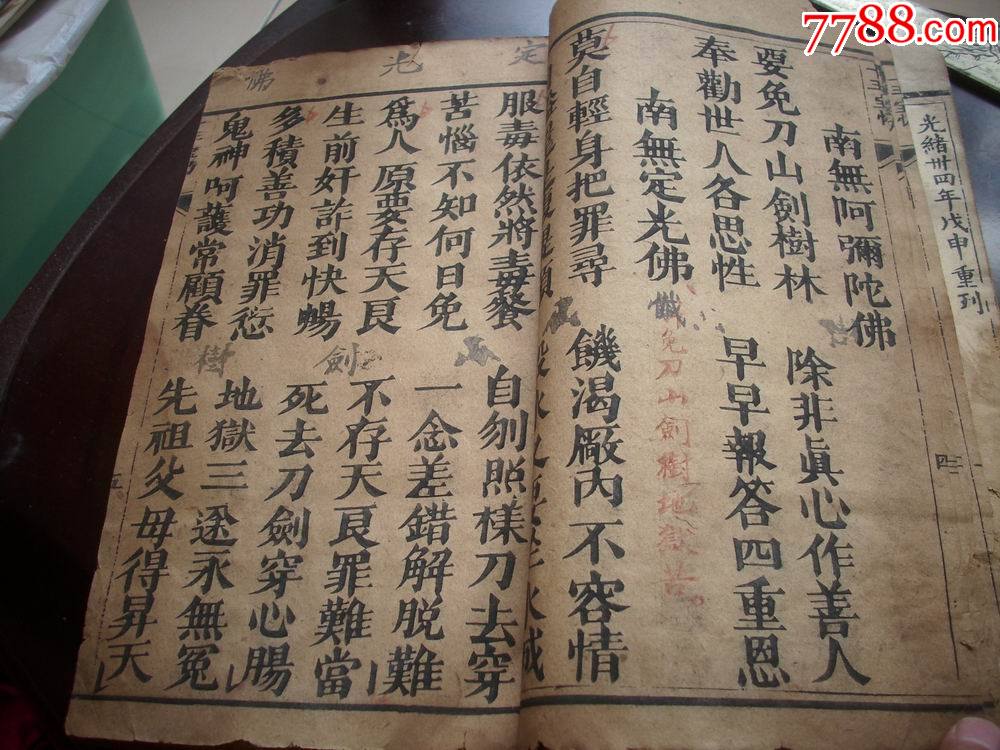 7788.com
光緒卅四年戊申重刋
四
南無阿彌陀佛
要免刀山劍樹林 除非眞心作善人
奉勸世人各思性 早早報答四重恩
南無定光佛 懺免刀山劍樹地獄苦
莫自輕身把罪尋 饑渴厰內不容情
定光佛
服毒依然將毒餐 自刎照樣刀去穿
苦惱不知何日免 一念差錯解脱難
爲人原要存天良 不存天良罪難當
生前奸詐到快暢 死去刀劍穿心腸
多積善功消罪愆 地獄三途永無冤
鬼神呵護常顧眷 先祖父毋得昇天
劍樹
五